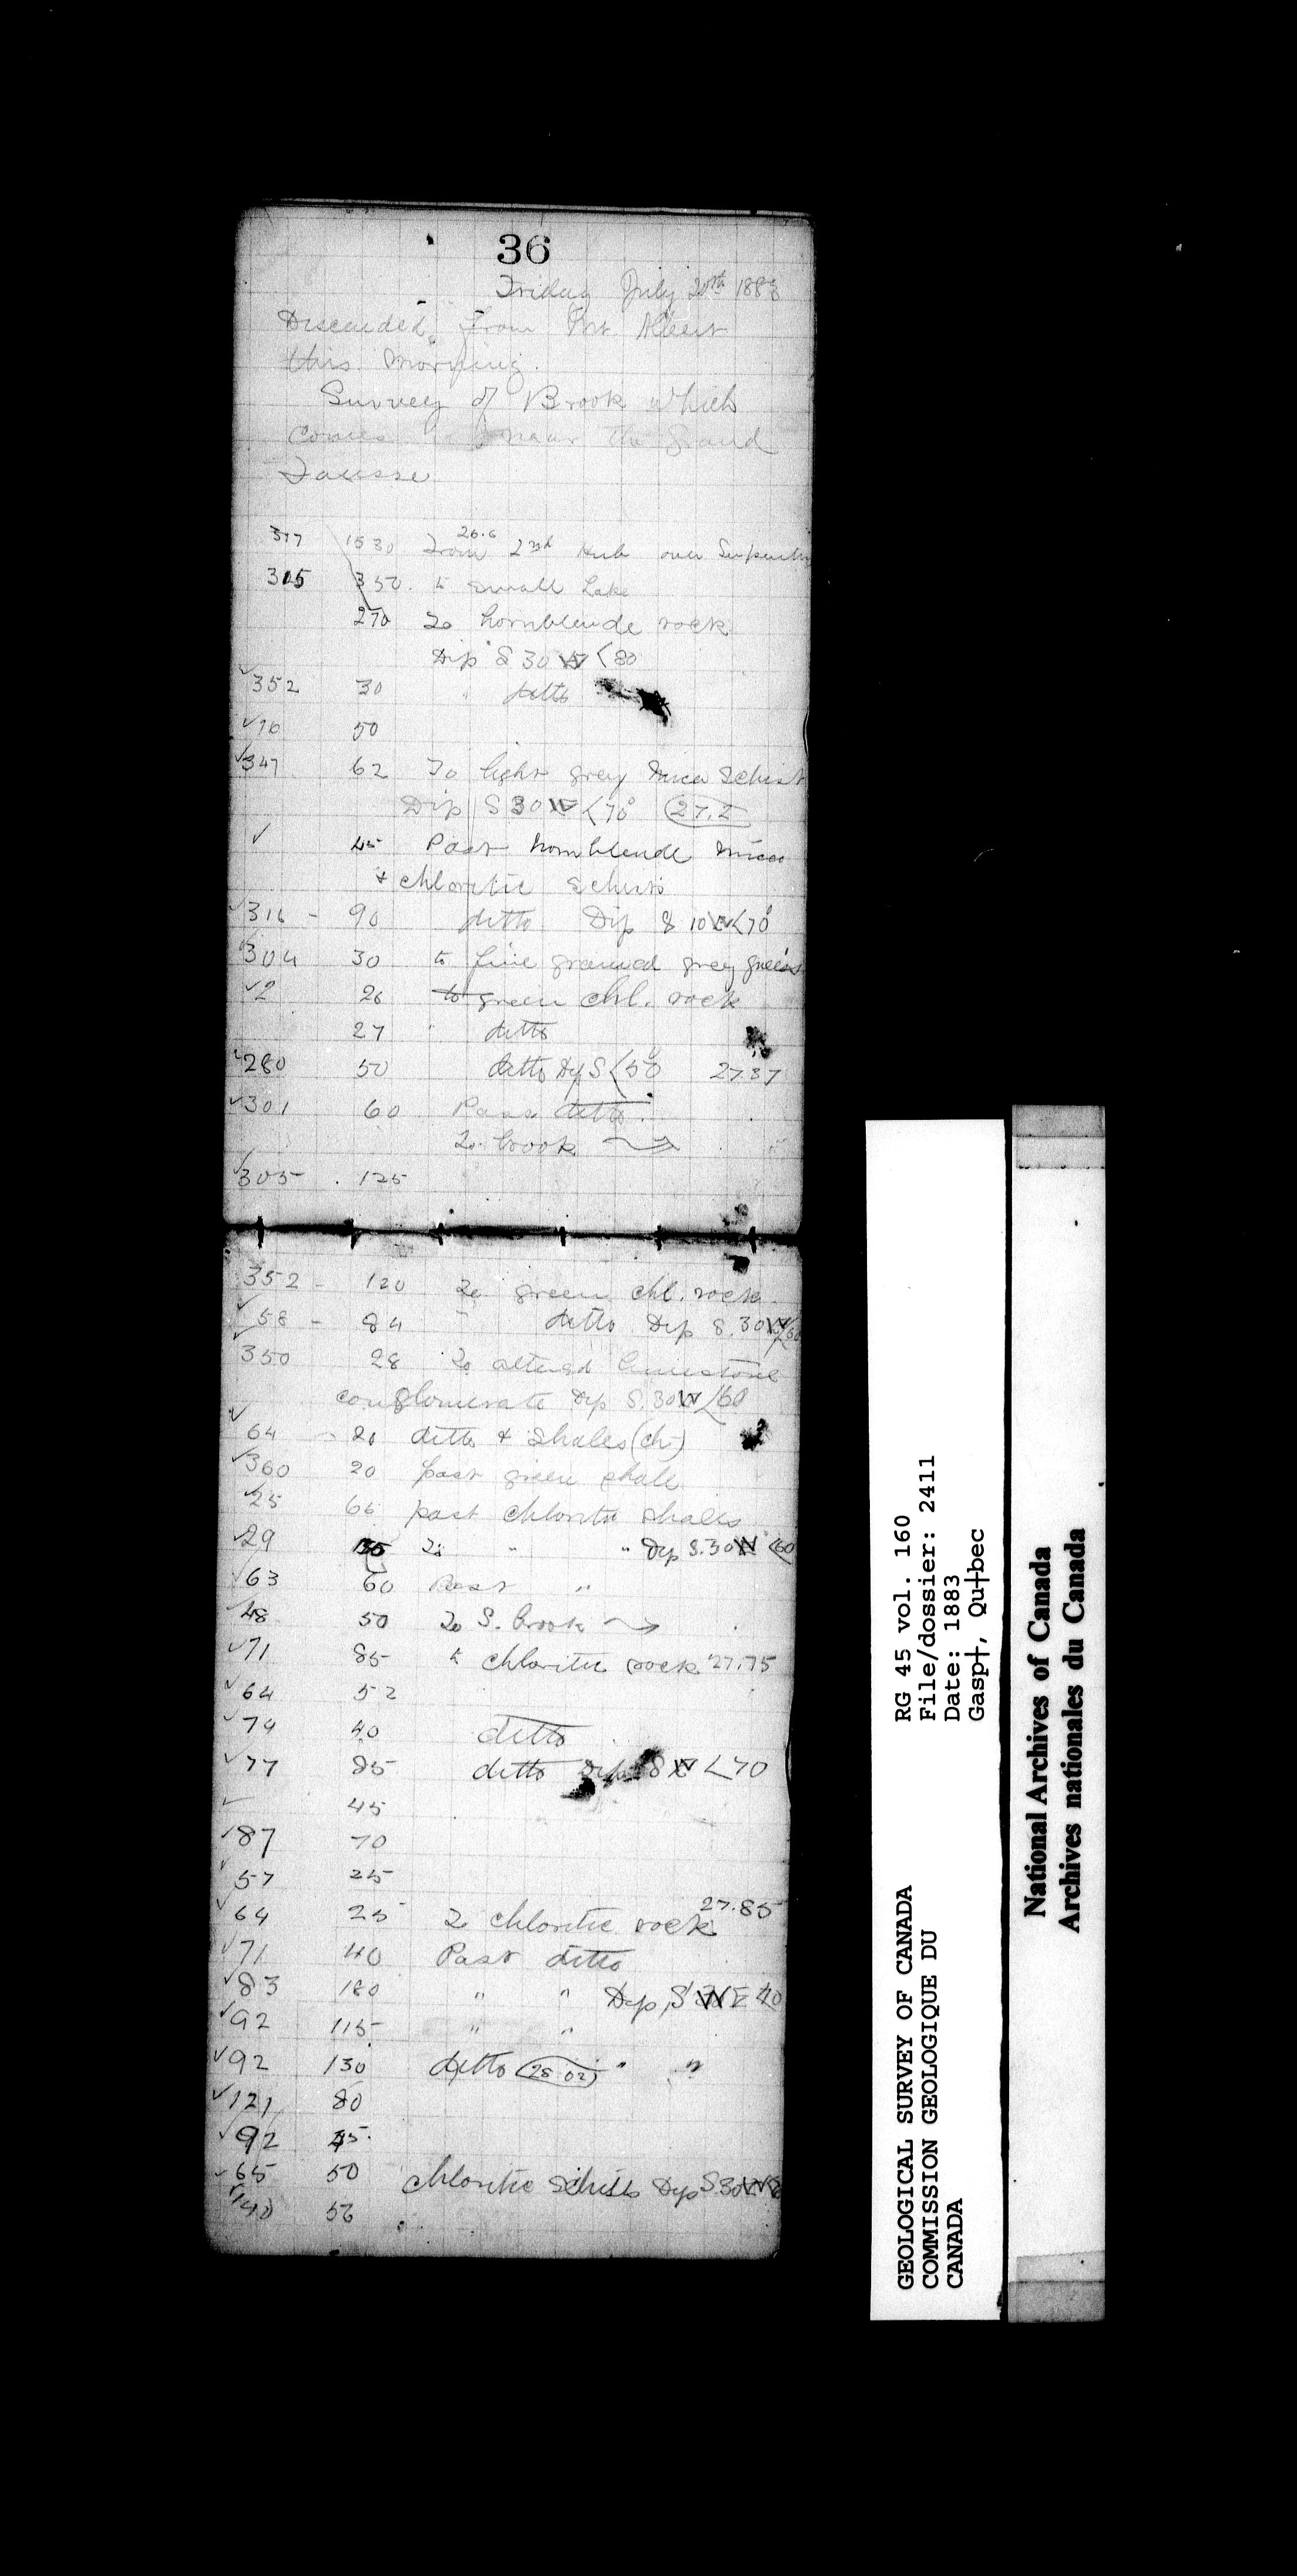 36
Friday July 20th 1883
Descended from Mt. Albert
this morning.
Survey of Brook which
comes near the Grand
Fausse
26.6
317 1530 From 2nd over Serpentine
315 350. to small Lake
270 To hornblende rock
Dip S 30 W <80
✓352 30 " ditto
✓16 50
✓347 62 To light grey mica Schist
Dip S 30 W <70° 27.2
✓ 45 Past hornblende mica
& chloritic schists
✓316 - 90 ditto Dip S 10 W <70°
✓304 30 to fine grained grey gneiss
✓2 26 to green chl. rock
27 " ditto
✓280 50 ditto Dip S <50° 27.37
✓301 60 Pass ditto.
To brook
✓305 125
352 - 120 To green chl. rock
✓58 - 84 " ditto Dip S. 30 W <60
✓350 28 To altered limestone
conglomerate Dip S. 30 W <60
✓64 - 20 ditto & Shales (ch-)
✓360 20 past green shale
✓25 66 past chloritic shales
✓29 To " " Dip S. 30 W <60
✓63 60 Past "
✓48 50 To S. brook
✓71 85 to chloritic rock 27.75
✓64 52
✓74 40 ditto
✓77 85 ditto Dip S <70
✓ 45
✓87 70
✓57 25
27.85
✓64 25 To chloritic rock
✓71 40 Past ditto
✓83 180 " " Dip S 40
✓92 115 " "
✓92 130 ditto 28.02 " "
✓121 80
✓92 45
✓65 50 Chloritic Schists Dip S. 30 W
✓40 56
GEOLOGICAL SURVEY OF CANADA
COMMISSION GEOLOGIQUE DU
CANADA
RG 45 vol. 160
File/dossier: 2411
Date: 1883
Gasp†, Qu†bec
National Archives of Canada
Archives nationales du Canada